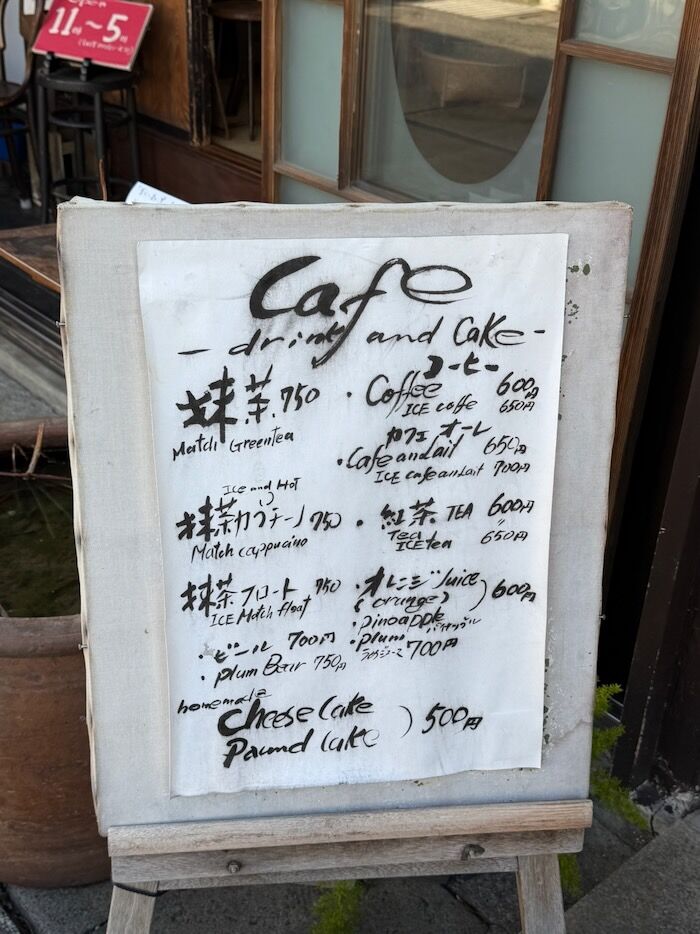 Open
11時～5時
Cafe
- drink and Cake -
抹茶 750
Match Greentea
Ice and Hot
抹茶カプチーノ 750
Match cappucino
抹茶フロート 750
ICE Match float
・ビール 700円
・plum Bear 750円
コーヒー
・Coffee 600円
ICE coffe 650円
カフェオーレ
・Cafe andlait 650円
ICE cafe andlait 700円
・紅茶 TEA 600円
Tea
ICE tea 650円
・オレンジ Juice
(orange) ) 600円
・pinoapple
パイナップル
・plum
うめジュース 700円
homemade
cheese Cake
Paund Cake ) 500円